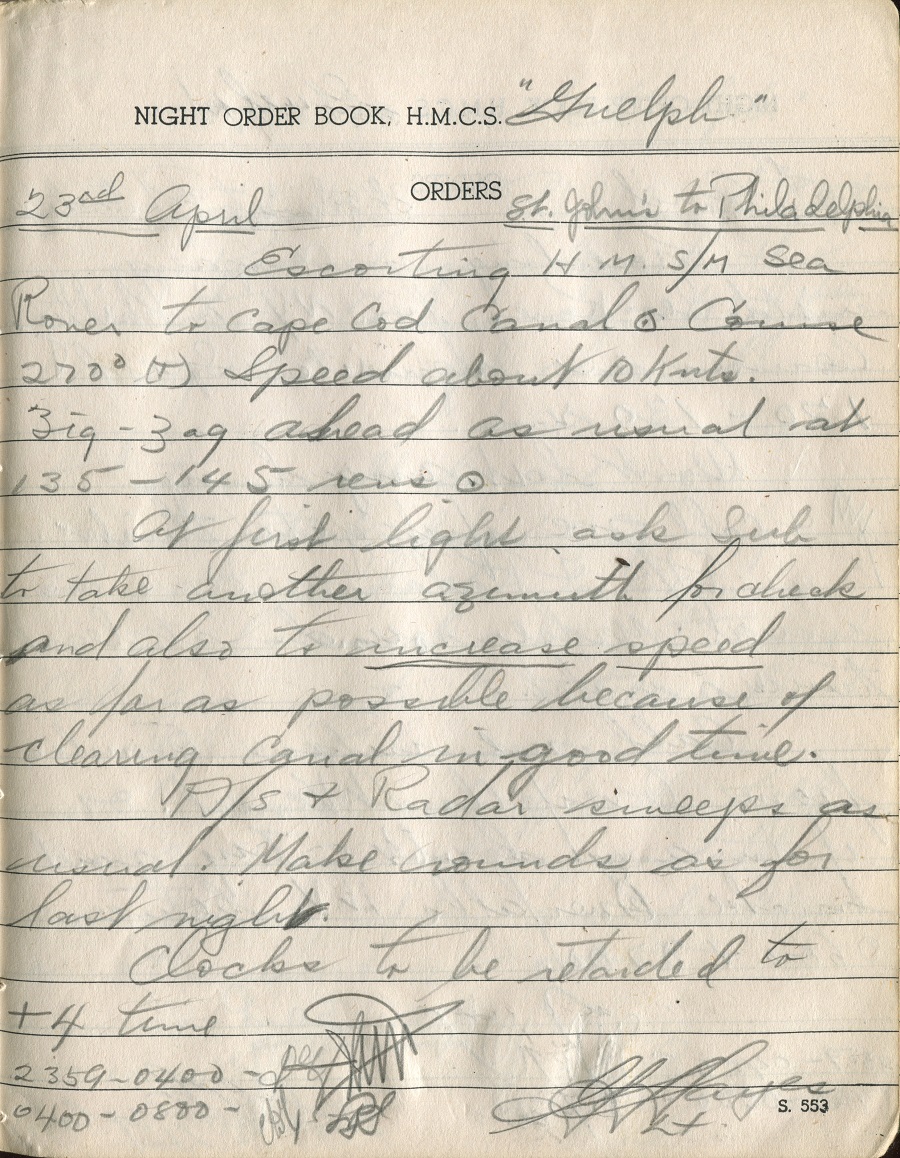 NIGHT ORDER BOOK, H.M.C.S. "Guelph"
ORDERS
23rd April St. John's to Philadelphia
Escorting H.M. S/M Sea
Rover to Cape Cod Canal ⊙ Course
270° (T) Speed about 10 Knts.
Zig-Zag ahead as usual at
135 - 145 revs ⊙
At first light ask Sub
to take another azimuth for check
and also to increase speed
as far as possible because of
clearing Canal in good time.
A/S + Radar sweeps as
usual. Make rounds as for
last night.
Clocks to be retarded to
+4 time
2359-0400 -
0400-0800 -
Hayes
Lt.
S. 553